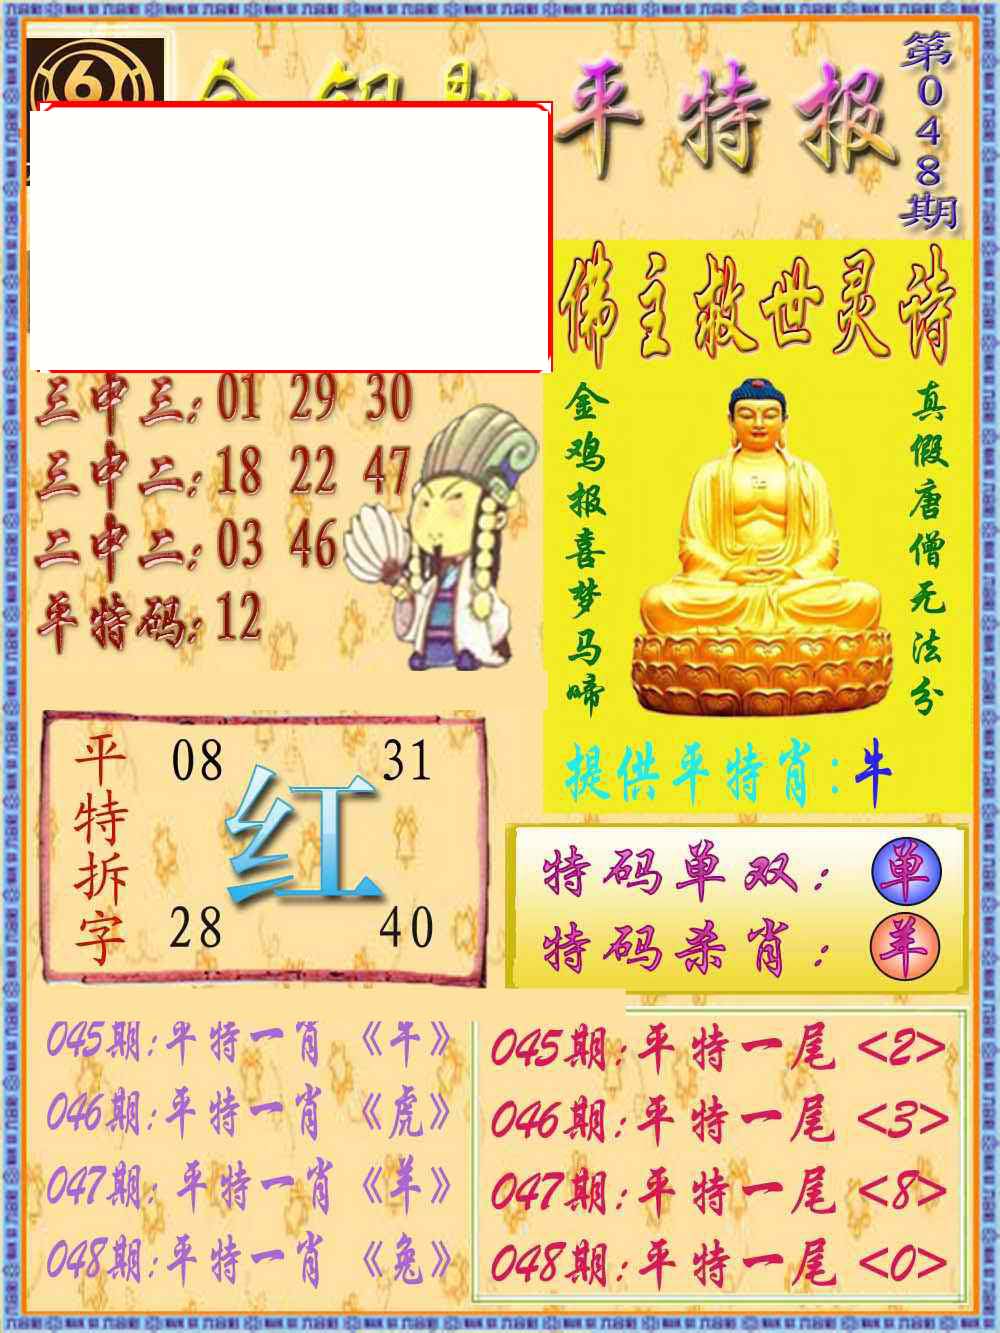 平特报
第048期
佛主救世灵诗
真假唐僧无法分
金鸡报喜梦马啼
提供平特肖：牛
三中三：01 29 30
三中二：18 22 47
二中二：03 46
平特码：12
平特拆字
08 31
红
28 40
特码单双：单
特码杀肖：羊
045期：平特一肖《牛》
046期：平特一肖《虎》
047期：平特一肖《羊》
048期：平特一肖《兔》
045期：平特一尾<2>
046期：平特一尾<3>
047期：平特一尾<8>
048期：平特一尾<0>